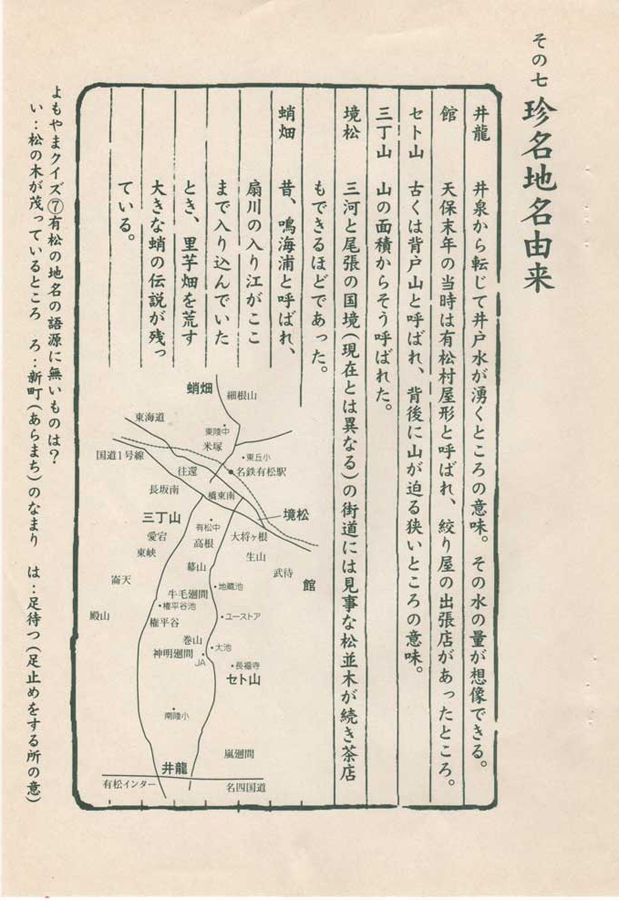 その七 珍名地名由来
井龍 井泉から転じて井戸水が湧くところの意味。その水の量が想像できる。
館 天保末年の当時は有松村屋形と呼ばれ、絞り屋の出張店があったところ。
セト山 古くは背戸山と呼ばれ、背後に山が迫る狭いところの意味。
三丁山 山の面積からそう呼ばれた。
境松 三河と尾張の国境(現在とは異なる)の街道には見事な松並木が続き茶店
もできるほどであった。
蛸畑 昔、鳴海浦と呼ばれ、
扇川の入り江がここ
まで入り込んでいた
とき、里芋畑を荒す
大きな蛸の伝説が残っ
ている。
蛸畑
細根山
東海道
東陵中
米塚
国道1号線
東丘小
往還
名鉄有松駅
長坂南
橋東南
三丁山
境松
有松中
愛宕
高根
大将ヶ根
東峡
生山
幕山
武待
嵐天
館
牛毛廻間
地蔵池
権平谷池
殿山
権平谷
ユーストア
巻山
大池
神明廻間
JA
長福寺
セト山
南陵小
嵐廻間
井龍
有松インター
名四国道
よもやまクイズ⑦有松の地名の語源に無いものは?
い:松の木が茂っているところ ろ:新町(あらまち)のなまり は:足待つ(足止めをする所の意)